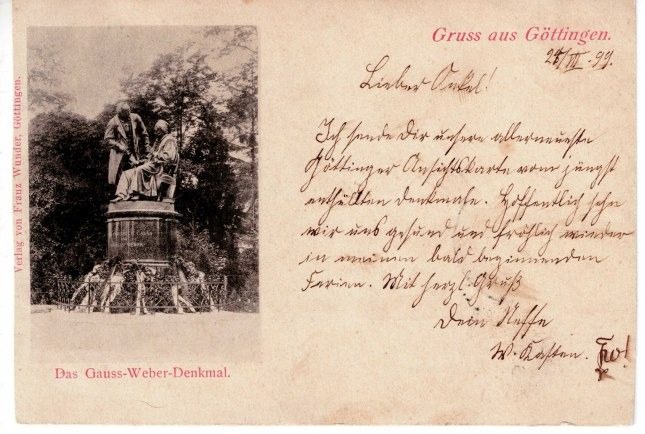 Gruss aus Göttingen.
Verlag von Franz Wunder, Göttingen.
Lieber Onkel!
Ich sende Dir unsere allerneueste
Göttinger Ansichtskarte vom jüngst
enthüllten Denkmale. Hoffentlich sehn
wir uns gesund und fröhlich wieder
in meinen bald beginnenden
Ferien. Mit herzl. Gruß
Dein Neffe
W. Kasten.
Das Gauss-Weber-Denkmal.